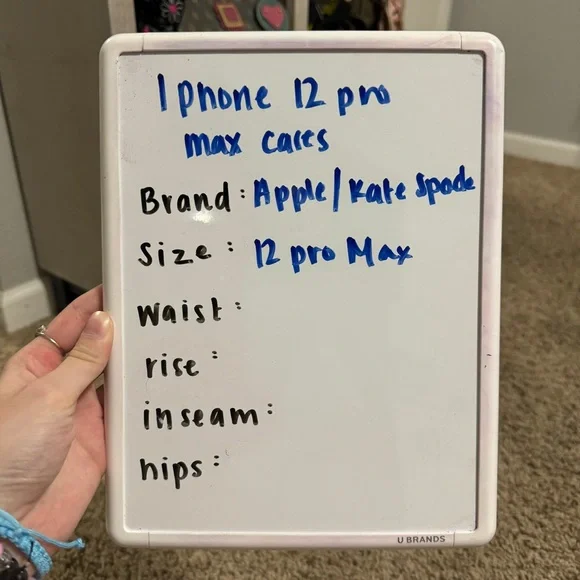 Iphone 12 pro
max cases
Brand: Apple/Kate Spade
Size: 12 pro Max
Waist:
rise:
inseam:
hips:
U BRANDS